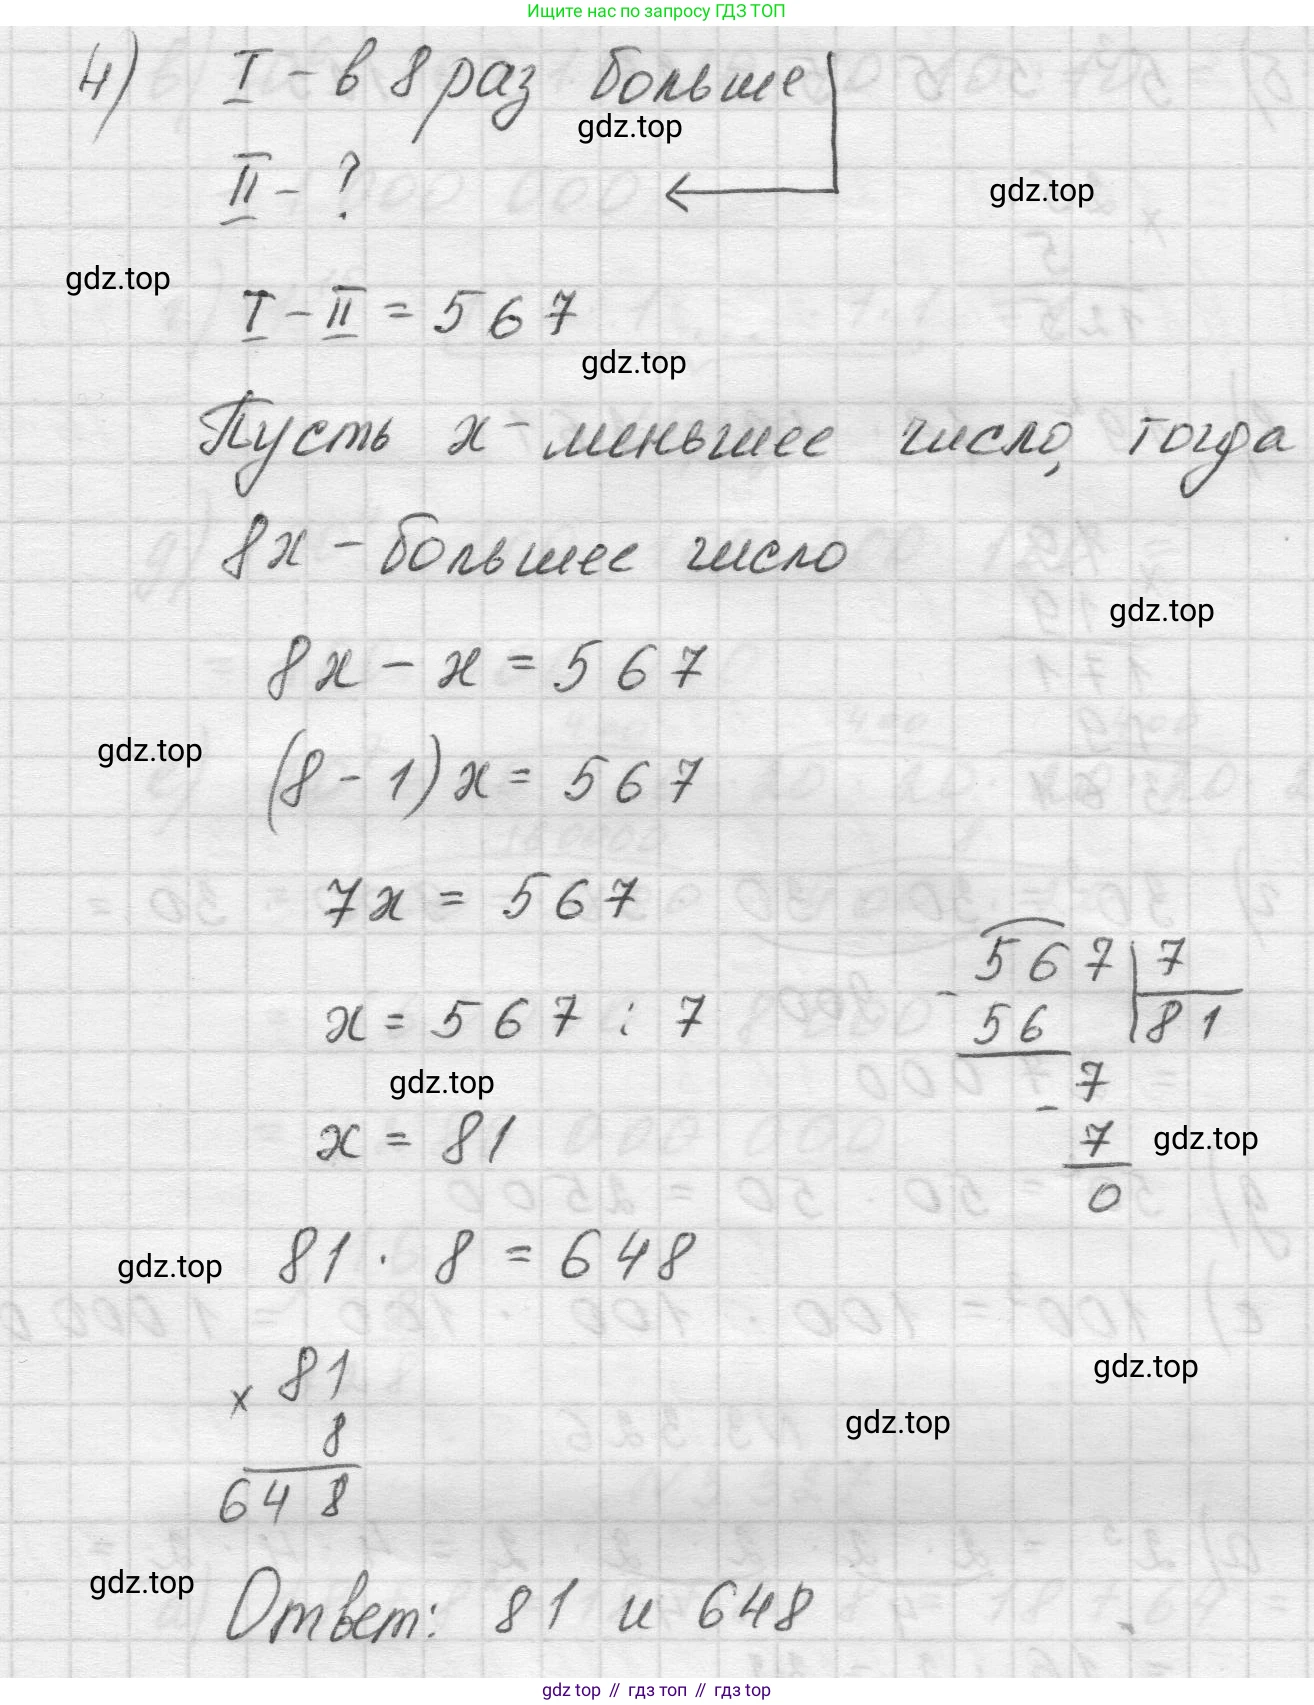 Ищите нас по запросу ГДЗ ТОП
4) I - в 8 раз больше
gdz.top
II - ?
gdz.top
gdz.top
I - II = 567
gdz.top
Пусть x - меньшее число, тогда
8x - большее число
gdz.top
8x - x = 567
gdz.top
(8 - 1)x = 567
7x = 567
x = 567 : 7
gdz.top
x = 81
567 7
- 56 81
7
- 7
0
gdz.top
gdz.top
81 · 8 = 648
81
× 8
648
gdz.top
gdz.top
gdz.top
Ответ: 81 и 648
gdz top // гдз топ // gdz top